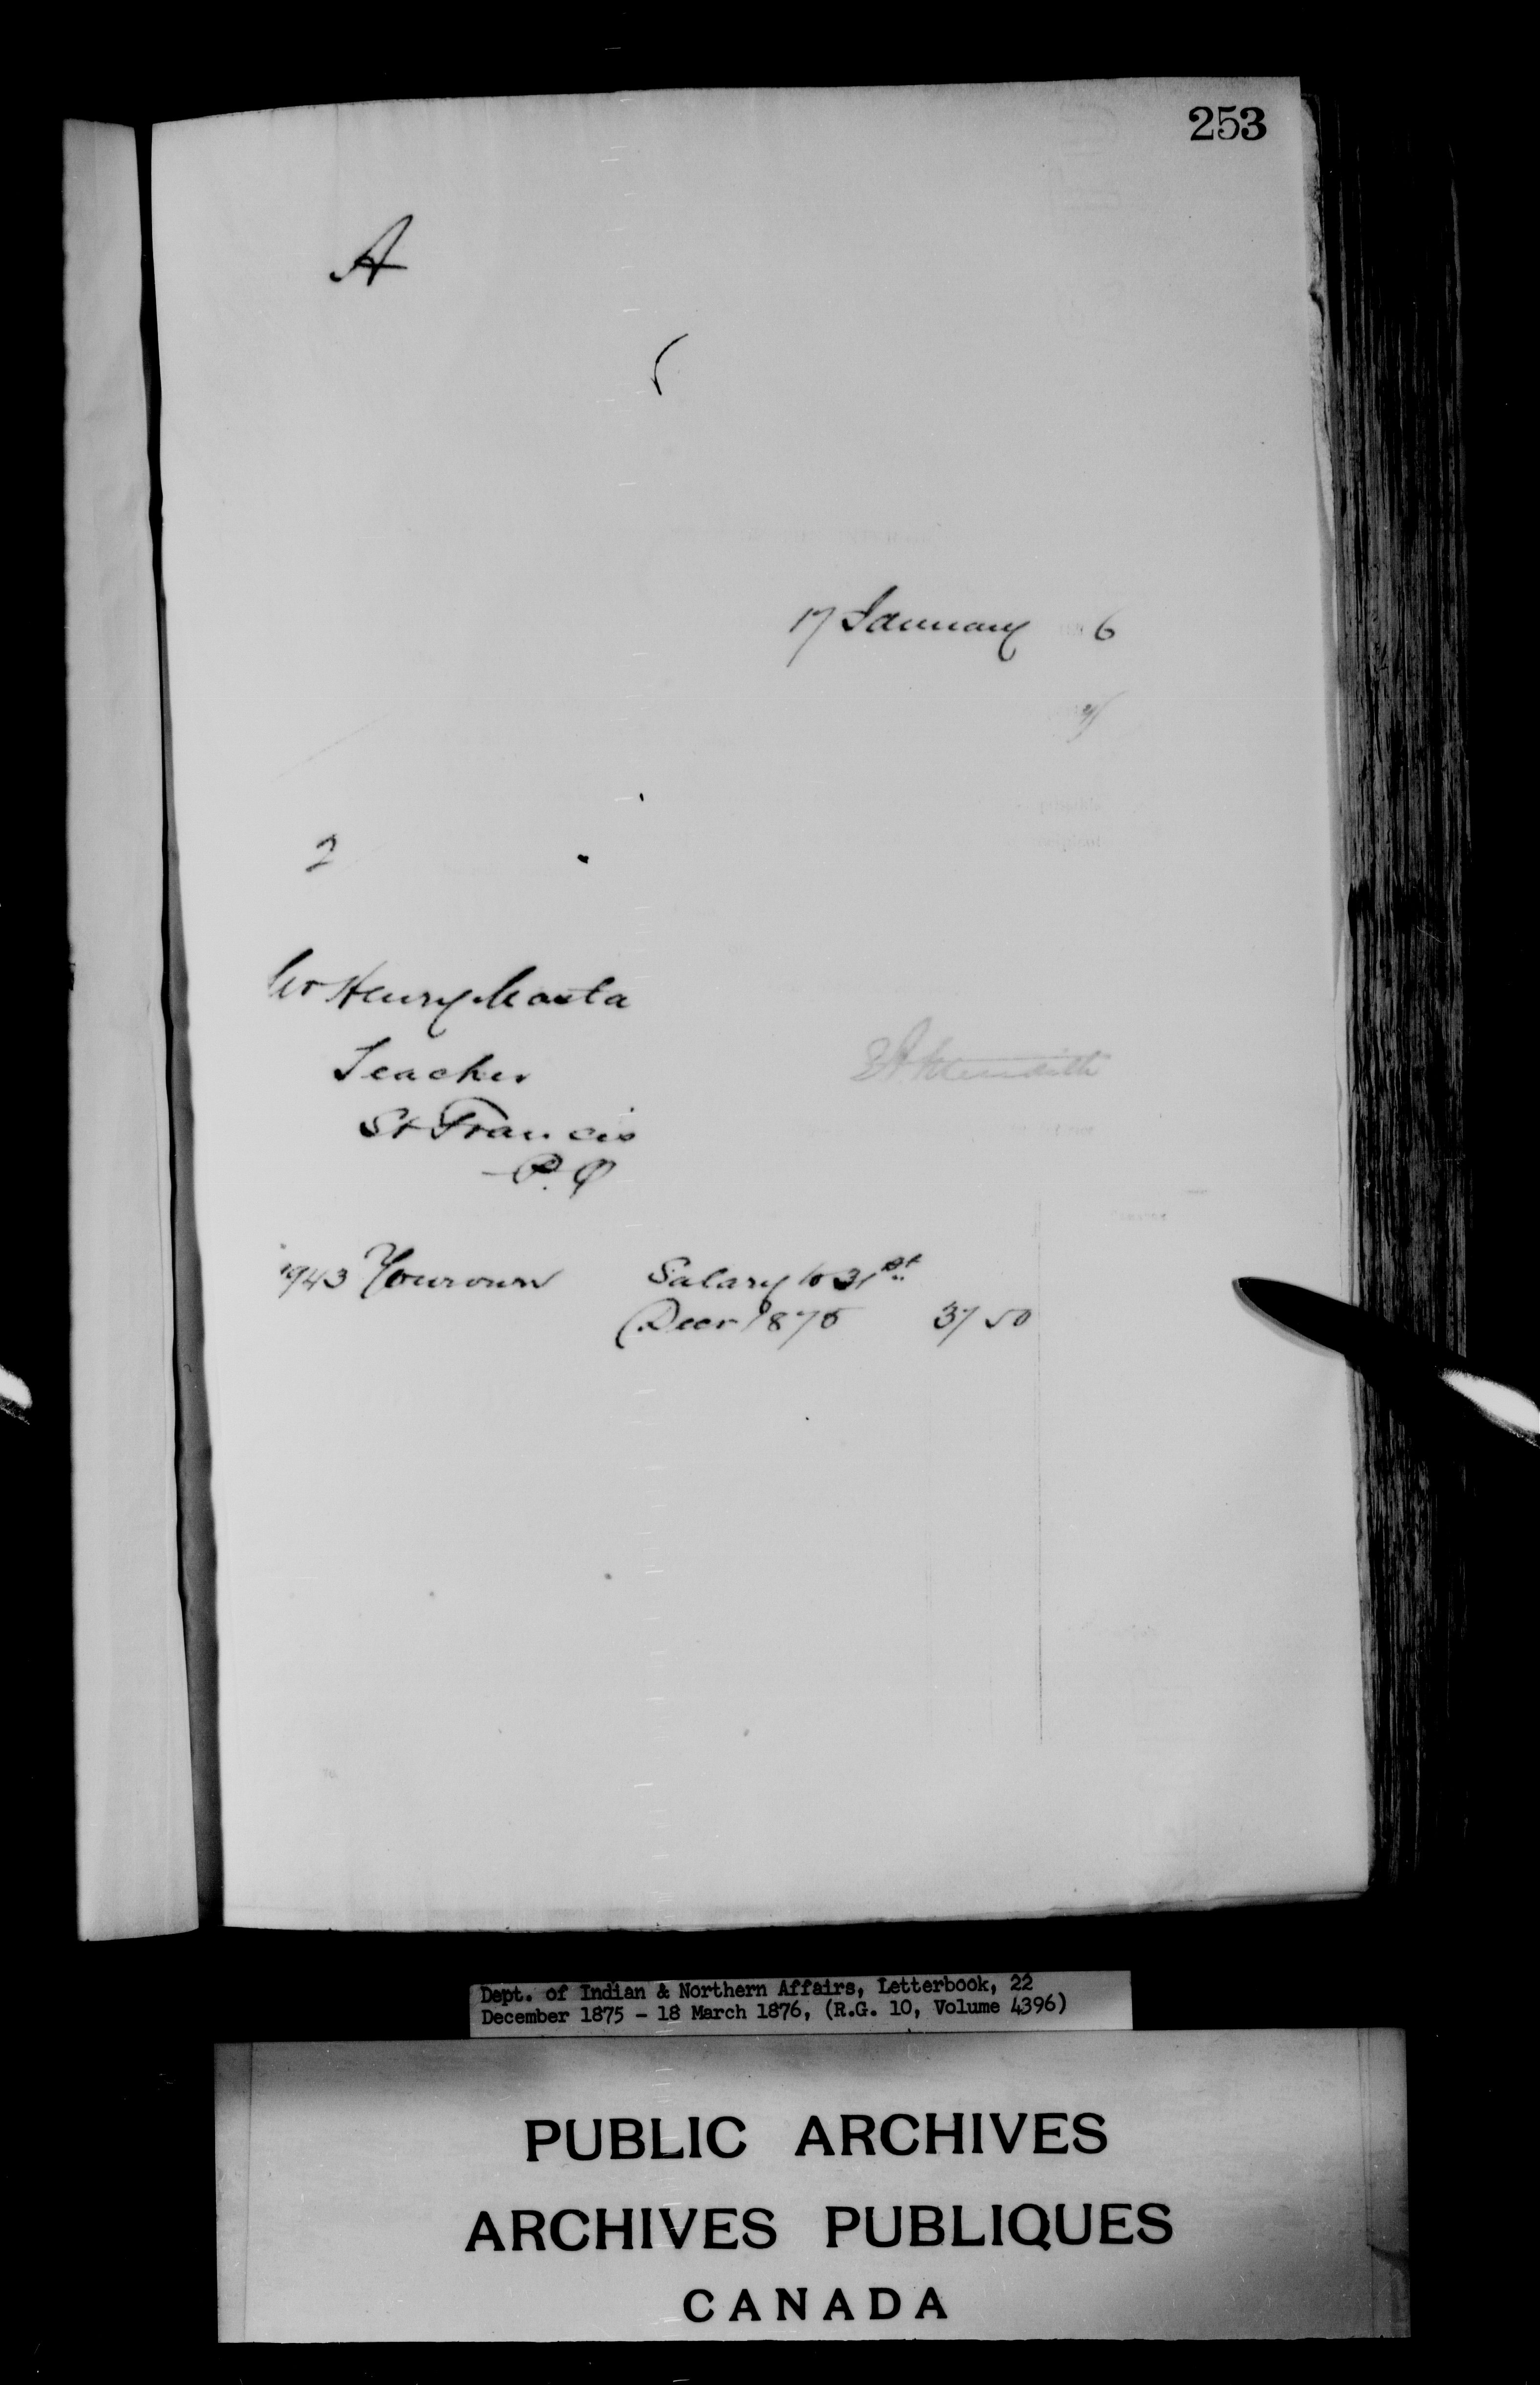 253
A
17 January 6
2
Mr Henry Masta
Teacher
St Francis
P.Q
943 Your own Salary to 31st
Decr 1875 37 50
Dept. of Indian & Northern Affairs, Letterbook, 22
December 1875 - 18 March 1876, (R.G. 10, Volume 4396)
PUBLIC ARCHIVES
ARCHIVES PUBLIQUES
CANADA